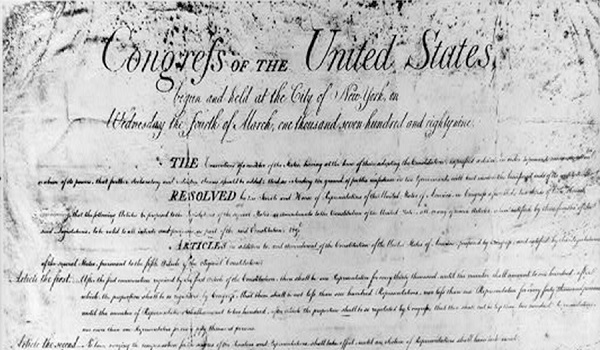 Congreſs OF THE United States,
begun and held at the City of New-York, on
Wednesday the fourth of March, one thousand seven hundred and eighty nine.
THE Conventions of a number of the States, having at the time of their adopting the Constitution, expressed a desire, in order to prevent
that further declaratory and restrictive clauses should be added: And as extending the ground of public confidence in the Government, will best ensure the
RESOLVED by the Senate and House of Representatives of the United States of America, in Congress assembled, two thirds of both Houses
that the following Articles be proposed to the Legislatures of the several States, as amendments to the Constitution of the United States, all, or any of which Articles, when ratified by three fourths of the said
Legislatures, to be valid to all intents and purposes, as part of the said Constitution; viz.
ARTICLES in addition to, and Amendment of the Constitution of the United States of America, proposed by Congress, and ratified by the Legislatures
of the several States, pursuant to the fifth Article of the original Constitution.
Article the first. After the first enumeration required by the first Article of the Constitution, there shall be one Representative for every thirty thousand, until the number shall amount to one hundred, after
which, the proportion shall be so regulated by Congress, that there shall be not less than one hundred Representatives, nor less than one Representative for every forty thousand persons,
until the number of Representatives shall amount to two hundred, after which the proportion shall be so regulated by Congress, that there shall not be less than two hundred Representatives,
nor more than one Representative for every fifty thousand persons.
Article the second. No law, varying the compensation for the services of the Senators and Representatives, shall take effect, until an election of Representatives shall have intervened.